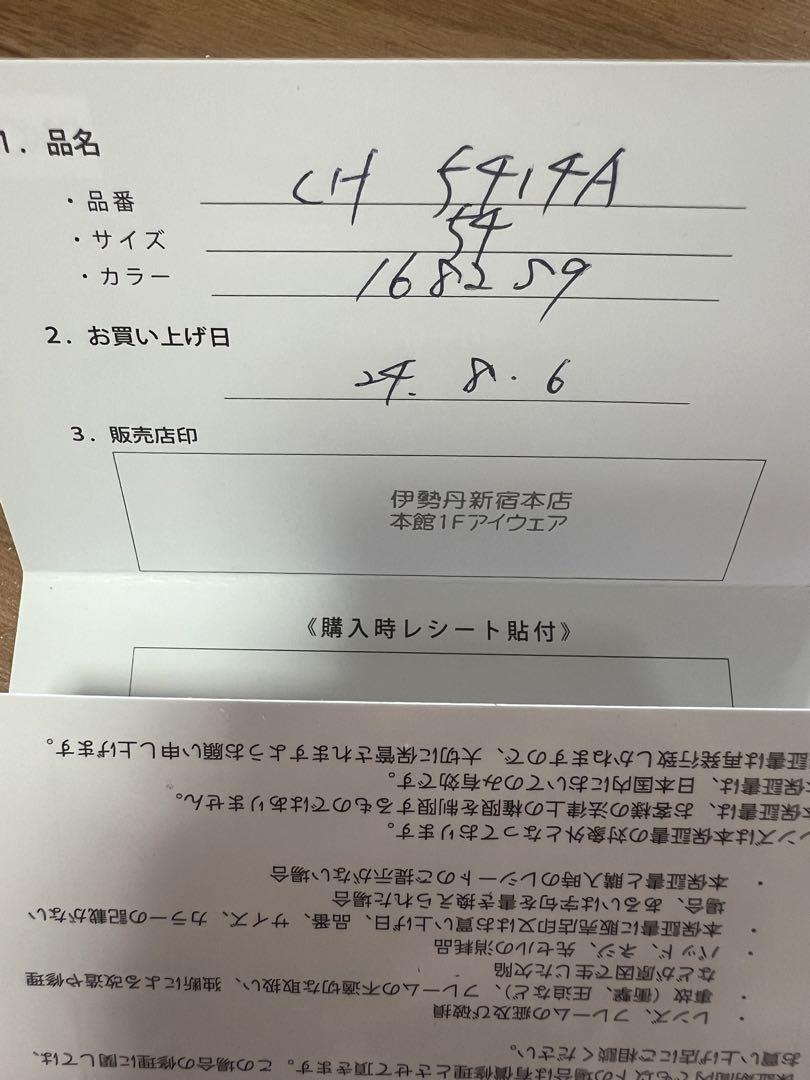 1. 品名
・品番 CH 5414A
・サイズ 54
・カラー 1682S9
2. お買い上げ日
24. 8. 6
3. 販売店印
伊勢丹新宿本店
本館1Fアイウェア
《購入時レシート貼付》
証書は再発行致しかねますので、大切に保管されますようお願い申し上げます。
保証書は、日本国内においてのみ有効です。
本保証書は、お客様の法律上の権限を制限するものではありません。
ンズは本保証書の対象外となっております。
・本保証書と購入時のレシートのご提示がない場合
場合、あるいは字句を書き換えられた場合
・本保証書に販売店印又はお買い上げ日、品番、サイズ、カラーの記載がない
・パッド、ネジ、先セルの消耗品
などが原因で生じた欠陥
・事故（衝撃、圧迫など）、フレームの不適切な取扱い、独断による改造や修理
・レンズ、フレームの症及び破損
お買い上げ店にご相談ください。
保証期間内でも以下の場合は有償修理とさせて頂きます。この場合の修理に関しては、